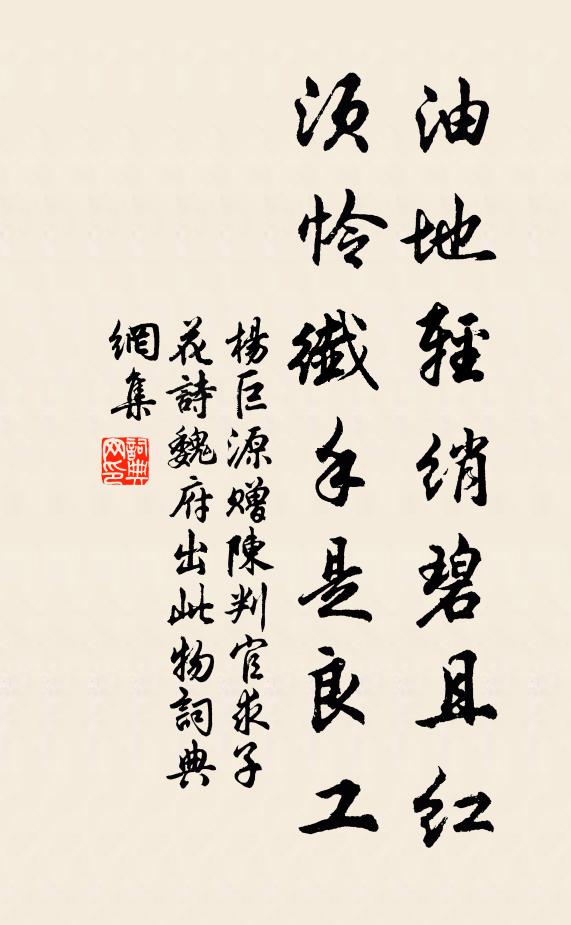 油地輕綃碧且紅
須憐纖手是良工
楊巨源贈陳判官求子
花詩魏府出此物詞典
網集
詞典網印